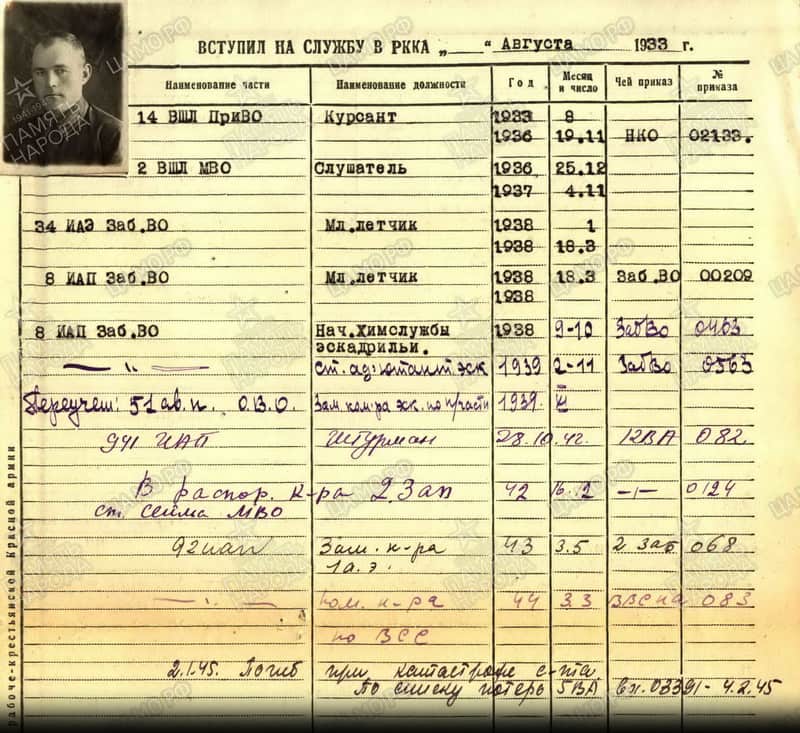 ВСТУПИЛ НА СЛУЖБУ В РККА „____“ Августа 1933 г.
Наименование части Наименование должности Год Месяц и число Чей приказ № приказа
14 ВШЛ ПриВО Курсант 1933 8
1936 19.11 НКО 02133.
2 ВШЛ МВО Слушатель 1936 25.12
1937 4.11
34 ИАЭ Заб.ВО Мл.летчик 1938 1
1938 18.3
8 ИАП Заб.ВО Мл.летчик 1938 18.3 Заб.ВО 00209
1938
8 ИАП Заб.ВО Нач.Химслужбы 1938 9-10 ЗабВО 0463
эскадрильи.
— „ — ст. ад'ютант эск 1939 2-11 ЗабВО 0563
Переучет: 51 ав.п. О.В.О. Зам.ком-ра эск. по 1939.
941 ИАП Штурман 28.10.42. 12ВА 082.
В распор. к-ра 2 Зап 42 16.2 -"- 0124
ст. Сейма МВО
92 иап Зам. к-ра 43 3.5 2 Заб 068
1 а.э.
— „ — Пом. к-ра 44 3.3 ВВСКА 083
по ВСС
2.1.45. Погиб при катастрофе с-та.
По списку потерь 5ВА вх. 03391- 4.2.45
рабоче-крестьянской Красной Армии
ПАМЯТЬ НАРОДА
ЦАМО РФ